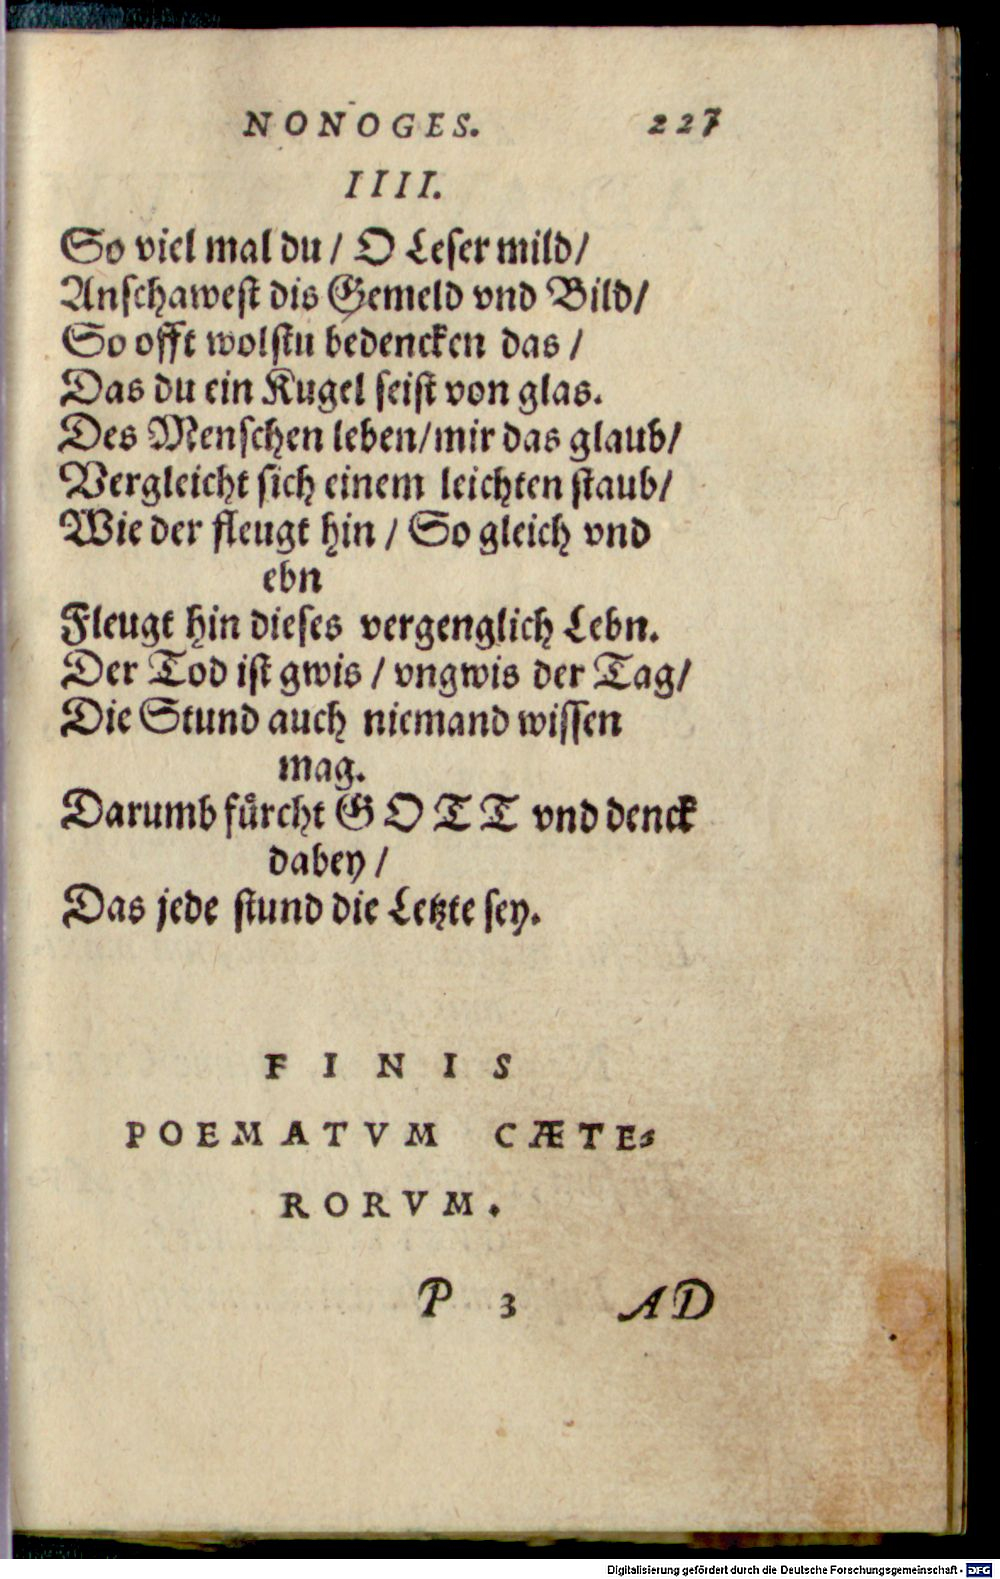 NONOGES. 227
IIII.
So viel mal du / O Leser mild/
Anschawest dis Gemeld vnd Bild/
So offt wolstu bedencken das /
Das du ein Kugel seist von glas.
Des Menschen leben/mir das glaub/
Vergleicht sich einem leichten staub/
Wie der fleugt hin / So gleich vnd
ebn
Fleugt hin dieses vergenglich Lebn.
Der Tod ist gwis / vngwis der Tag/
Die Stund auch niemand wissen
mag.
Darumb fuͤrcht GOTT vnd denck
dabey /
Das jede stund die Letzte sey.
FINIS
POEMATVM CÆTE-
RORVM.
P 3 AD
Digitalisierung gefördert durch die Deutsche Forschungsgemeinschaft - DFG